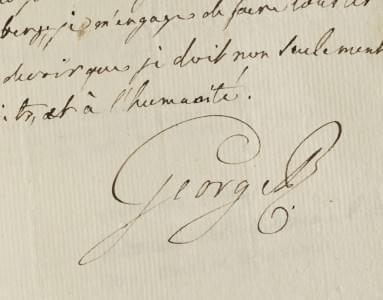 je m'engage de faire tous les
devoir que je doit non seulement
et à l'humanité.
George R